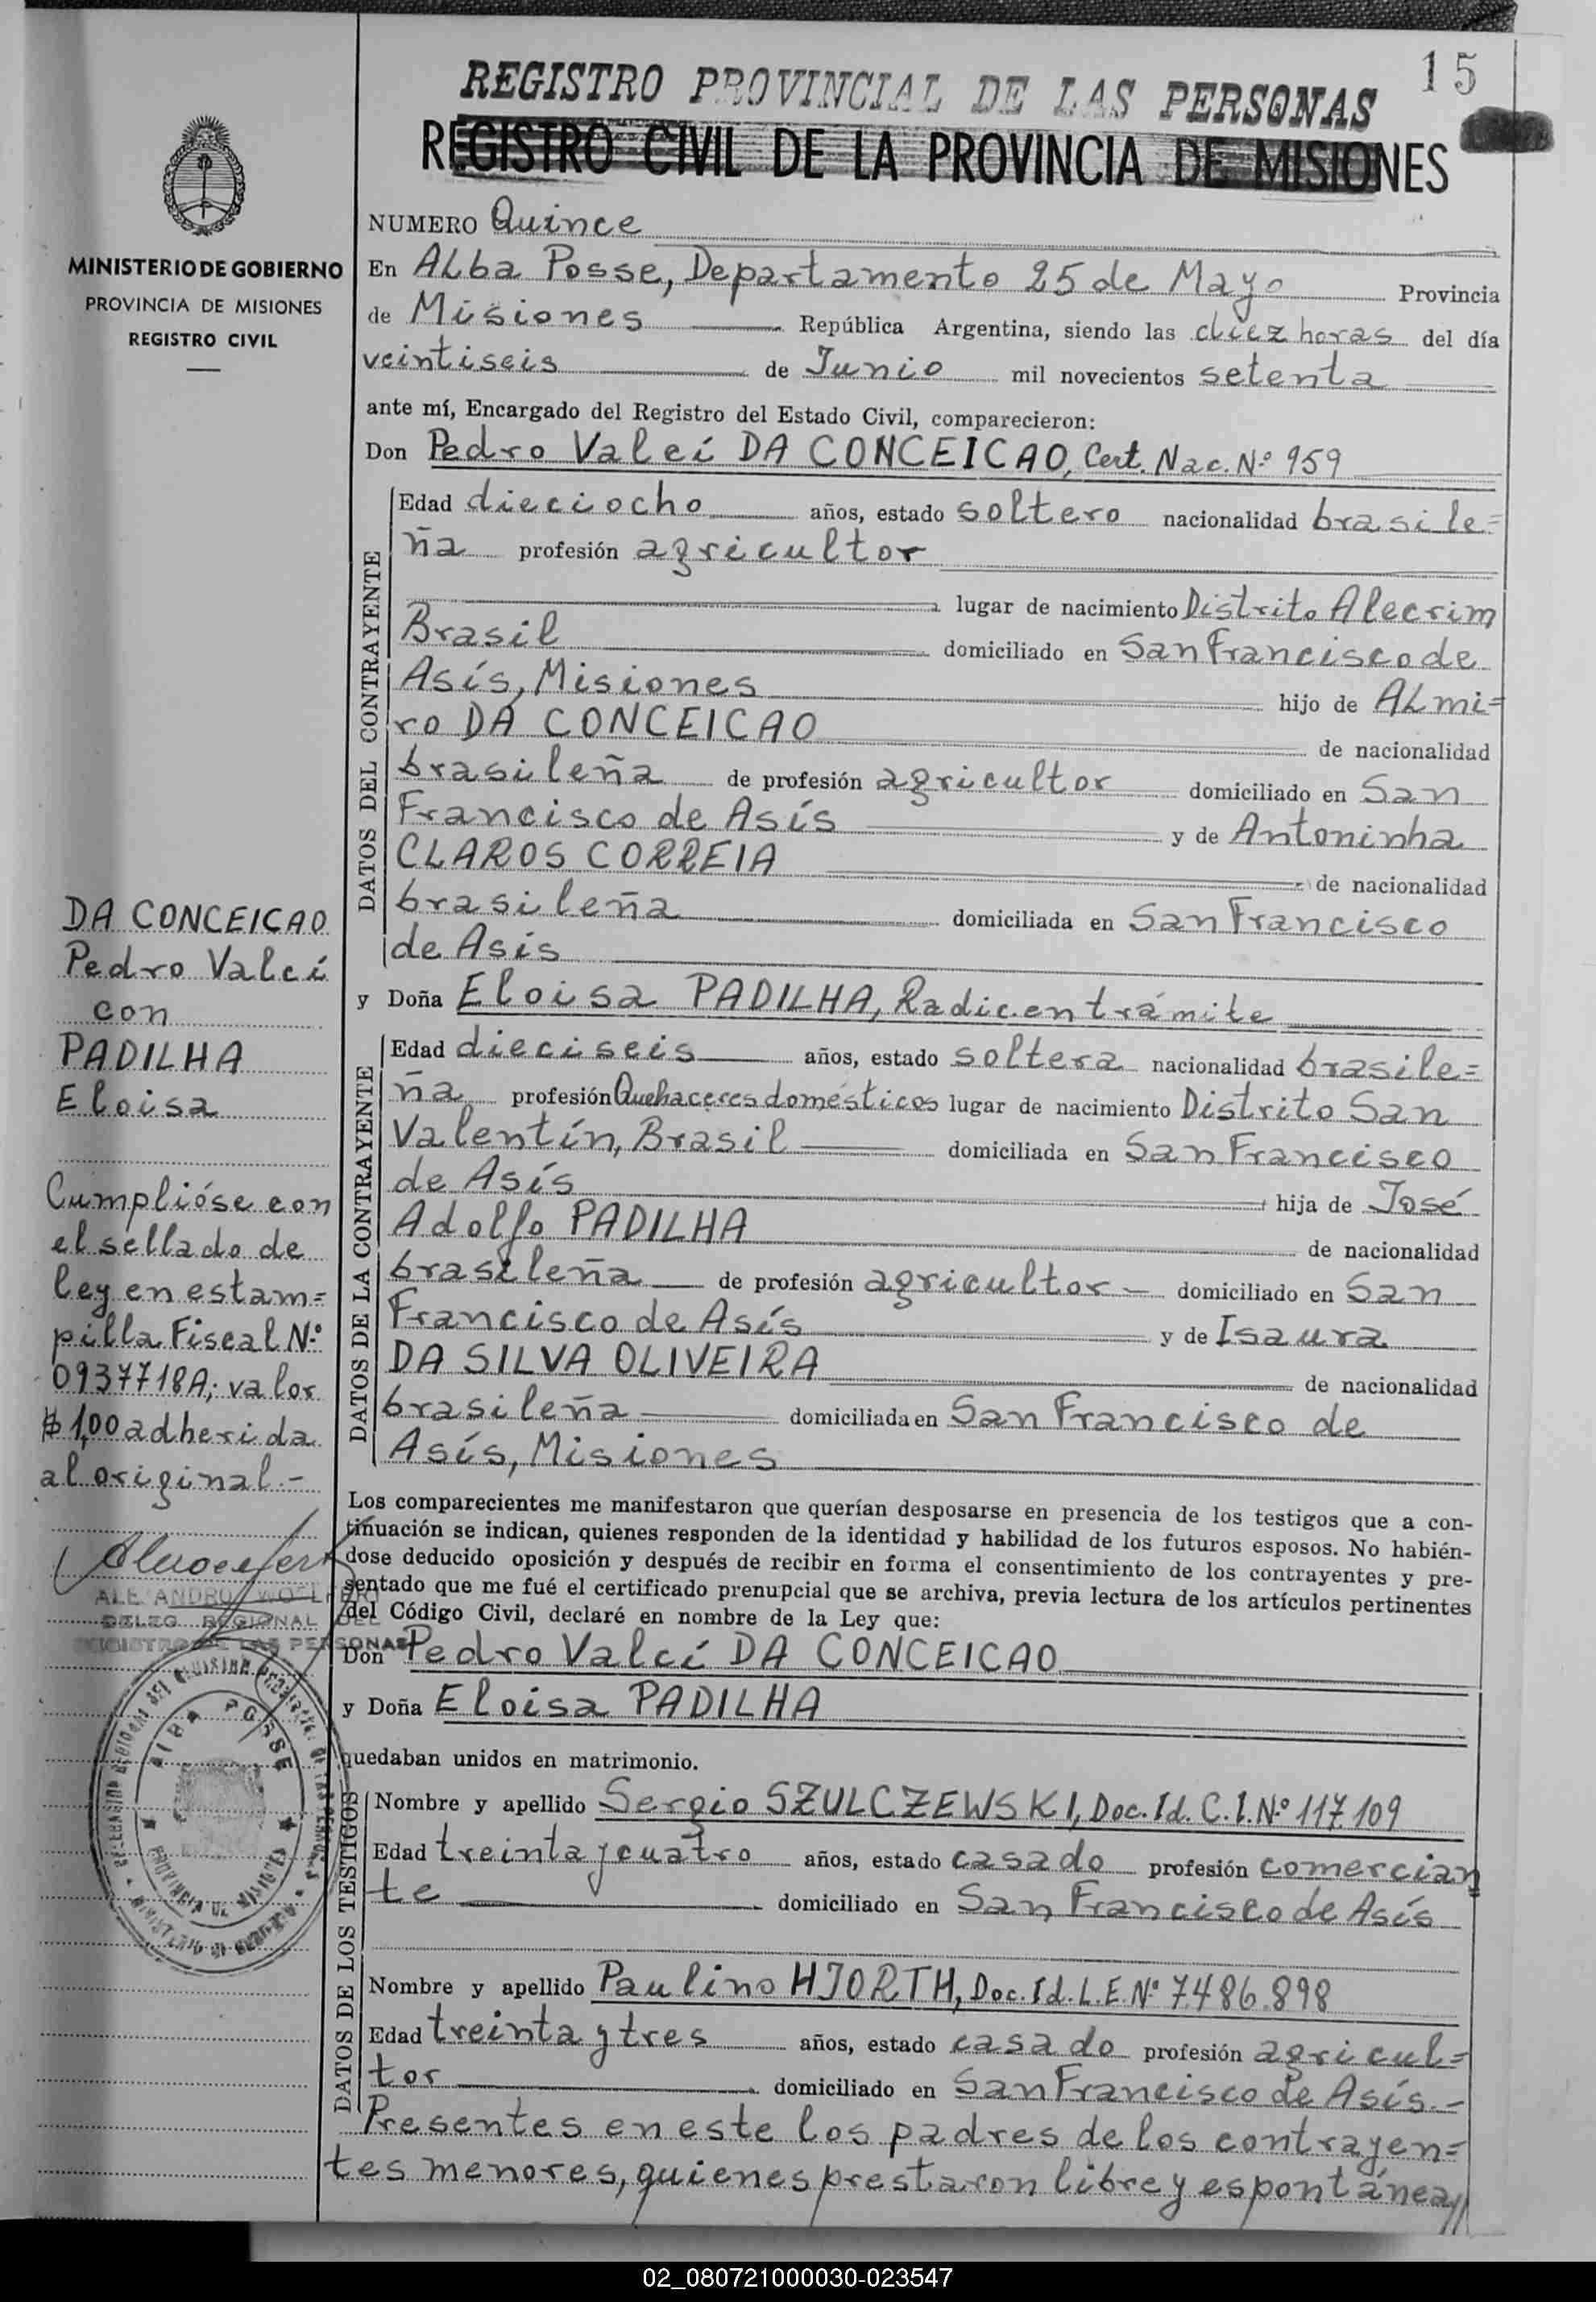 15
REGISTRO PROVINCIAL DE LAS PERSONAS
REGISTRO CIVIL DE LA PROVINCIA DE MISIONES
MINISTERIO DE GOBIERNO
PROVINCIA DE MISIONES
REGISTRO CIVIL
NUMERO Quince
En Alba Posse, Departamento 25 de Mayo Provincia
de Misiones República Argentina, siendo las diez horas del día
veintiseis de Junio mil novecientos setenta
ante mí, Encargado del Registro del Estado Civil, comparecieron:
Don Pedro Valci DA CONCEICAO, Cert. Nac. Nº 959
DATOS DEL CONTRAYENTE
Edad dieciocho años, estado soltero nacionalidad brasile=
ña profesión agricultor
lugar de nacimiento Distrito Alecrim
Brasil domiciliado en San Francisco de
Asís, Misiones hijo de Almi=
ro DA CONCEICAO de nacionalidad
brasileña de profesión agricultor domiciliado en San
Francisco de Asís y de Antoninha
CLAROS CORREIA de nacionalidad
brasileña domiciliada en San Francisco
de Asís
y Doña Eloisa PADILHA, Radic. en trámite
DATOS DE LA CONTRAYENTE
Edad dieciseis años, estado soltera nacionalidad brasile=
ña profesión Quehaceres domésticos lugar de nacimiento Distrito San
Valentín, Brasil domiciliada en San Francisco
de Asís hija de José
Adolfo PADILHA de nacionalidad
brasileña de profesión agricultor domiciliado en San
Francisco de Asís y de Isaura
DA SILVA OLIVEIRA de nacionalidad
brasileña domiciliada en San Francisco de
Asís, Misiones
Los comparecientes me manifestaron que querían desposarse en presencia de los testigos que a con-
tinuación se indican, quienes responden de la identidad y habilidad de los futuros esposos. No habién-
dose deducido oposición y después de recibir en forma el consentimiento de los contrayentes y pre-
sentado que me fué el certificado prenupcial que se archiva, previa lectura de los artículos pertinentes
del Código Civil, declaré en nombre de la Ley que:
Don Pedro Valci DA CONCEICAO
y Doña Eloisa PADILHA
quedaban unidos en matrimonio.
DATOS DE LOS TESTIGOS
Nombre y apellido Sergio SZULCZEWSKI, Doc. Id. C.I. Nº 117.109
Edad treinta y cuatro años, estado casado profesión comercian
te domiciliado en San Francisco de Asís
Nombre y apellido Paulino HJORTH, Doc. Id. L.E. Nº 7.486.898
Edad treinta y tres años, estado casado profesión agricul=
tor domiciliado en San Francisco de Asís.-
Presentes en este los padres de los contrayen=
tes menores, quienes prestaron libre y espontánea//
DA CONCEICAO
Pedro Valci
con
PADILHA
Eloisa
Cumplióse con
el sellado de
ley en estam=
pilla Fiscal Nº
0937718A; valor
$ 1,00 adherida
al original.-
DELEG. REGIONAL DEL
REGISTRO DE LAS PERSONAS
ALBA POSSE
PROVINCIA DE MISIONES
02_080721000030-023547